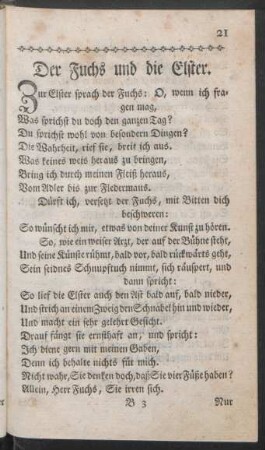 21
Der Fuchs und die Elster.
Zur Elster sprach der Fuchs: O, wenn ich fra-
gen mag,
Was sprichst du doch den ganzen Tag?
Du sprichst wohl von besondern Dingen?
Die Wahrheit, rief sie, breit ich aus.
Was keines weis heraus zu bringen,
Bring ich durch meinen Fleiß heraus,
Vom Adler bis zur Fledermaus.
Dürft ich, versetzt der Fuchs, mit Bitten dich
beschweren:
So wünscht ich mir, etwas von deiner Kunst zu hören.
So, wie ein weiser Arzt, der auf der Bühne steht,
Und seine Künste rühmt, bald vor, bald rückwärts geht,
Sein seidnes Schnupftuch nimmt, sich räuspert, und
dann spricht:
So lief die Elster auch den Ast bald auf, bald nieder,
Und strich an einem Zweig den Schnabel hin und wieder,
Und macht ein sehr gelehrt Gesicht.
Drauf fängt sie ernsthaft an, und spricht:
Ich diene gern mit meinen Gaben,
Denn ich behalte nichts für mich.
Nicht wahr, Sie denken doch, daß Sie vier Füße haben?
Allein, Herr Fuchs, Sie irren sich.
B 3 Nur